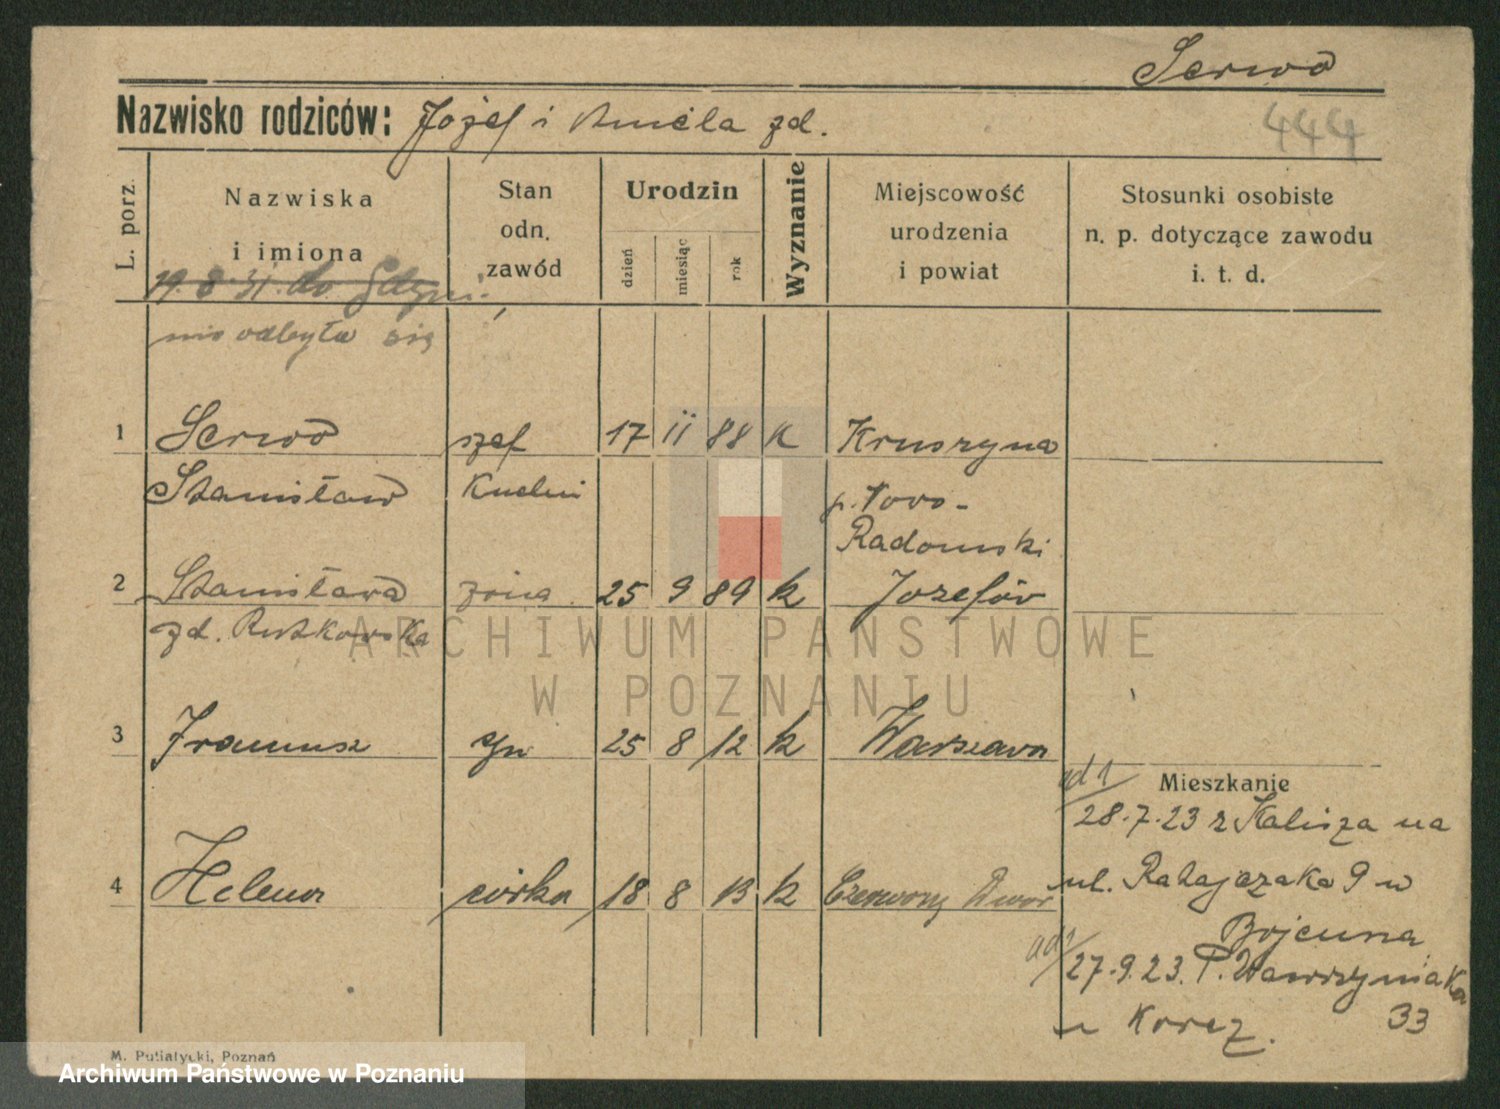 Serwo
Nazwisko rodziców: Józef i Aniela zd.
444
L. porz.
Nazwiska
i imiona
Stan
odn.
zawód
Urodzin
dzień
miesiąc
rok
Wyznanie
Miejscowość
urodzenia
i powiat
Stosunki osobiste
n. p. dotyczące zawodu
i. t. d.
19.8.31. do Gdyni
nie odbyła się
1 Serwo szef 17 II 88 k Kruszyna
Stanisław Kuchni p. Nowo-
Radomski
2 Stanisława żona 25 9 89 k Józefów
zd. Rutkowska
ARCHIWUM PAŃSTWOWE
W POZNANIU
3 Iraeneusz syn 25 8 12 k Warszawa
Mieszkanie
ad 1/
28.7.23 z Kalisza na
4 Helena córka 18 8 13 k Czerwony Dwór
ul. Ratajczaka 9 u
Bojeuna
ad 1/ 27.9.23. P. Wawrzyniaka
33
u Korcz.
M. Putiatycki, Poznań
Archiwum Państwowe w Poznaniu